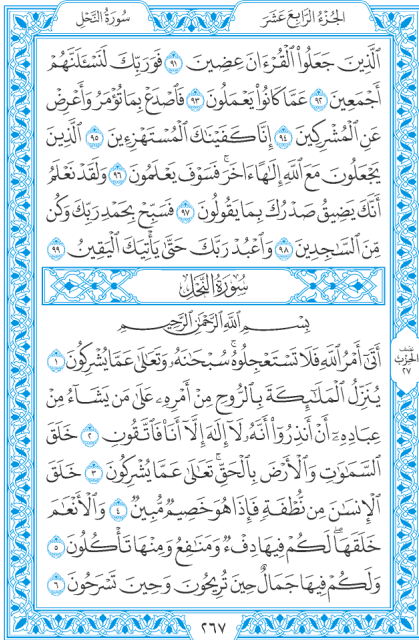 الجُزْءُ الرَّابِعَ عَشَرَ
سُورَةُ النَّحْلِ
ٱلَّذِينَ جَعَلُوا۟ ٱلْقُرْءَانَ عِضِينَ ٩١ فَوَرَبِّكَ لَنَسْـَٔلَنَّهُمْ
أَجْمَعِينَ ٩٢ عَمَّا كَانُوا۟ يَعْمَلُونَ ٩٣ فَٱصْدَعْ بِمَا تُؤْمَرُ وَأَعْرِضْ
عَنِ ٱلْمُشْرِكِينَ ٩٤ إِنَّا كَفَيْنَٰكَ ٱلْمُسْتَهْزِءِينَ ٩٥ ٱلَّذِينَ
يَجْعَلُونَ مَعَ ٱللَّهِ إِلَٰهًا ءَاخَرَ ۚ فَسَوْفَ يَعْلَمُونَ ٩٦ وَلَقَدْ نَعْلَمُ
أَنَّكَ يَضِيقُ صَدْرُكَ بِمَا يَقُولُونَ ٩٧ فَسَبِّحْ بِحَمْدِ رَبِّكَ وَكُن
مِّنَ ٱلسَّٰجِدِينَ ٩٨ وَٱعْبُدْ رَبَّكَ حَتَّىٰ يَأْتِيَكَ ٱلْيَقِينُ ٩٩
سُورَةُ النَّحْلِ
بِسْمِ ٱللَّهِ ٱلرَّحْمَٰنِ ٱلرَّحِيمِ
أَتَىٰٓ أَمْرُ ٱللَّهِ فَلَا تَسْتَعْجِلُوهُ ۚ سُبْحَٰنَهُۥ وَتَعَٰلَىٰ عَمَّا يُشْرِكُونَ ١
يُنَزِّلُ ٱلْمَلَٰٓئِكَةَ بِٱلرُّوحِ مِنْ أَمْرِهِۦ عَلَىٰ مَن يَشَآءُ مِنْ
عِبَادِهِۦٓ أَنْ أَنذِرُوٓا۟ أَنَّهُۥ لَآ إِلَٰهَ إِلَّآ أَنَا۠ فَٱتَّقُونِ ٢ خَلَقَ
ٱلسَّمَٰوَٰتِ وَٱلْأَرْضَ بِٱلْحَقِّ ۚ تَعَٰلَىٰ عَمَّا يُشْرِكُونَ ٣ خَلَقَ
ٱلْإِنسَٰنَ مِن نُّطْفَةٍ فَإِذَا هُوَ خَصِيمٌ مُّبِينٌ ٤ وَٱلْأَنْعَٰمَ
خَلَقَهَا ۗ لَكُمْ فِيهَا دِفْءٌ وَمَنَٰفِعُ وَمِنْهَا تَأْكُلُونَ ٥
وَلَكُمْ فِيهَا جَمَالٌ حِينَ تُرِيحُونَ وَحِينَ تَسْرَحُونَ ٦
نصف
الحزب
٢٧
٢٦٧